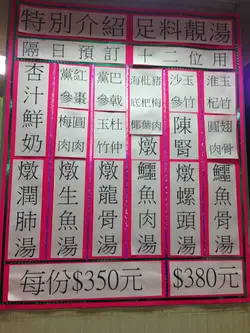 特別介紹
足料靚湯
隔日預訂
十二位用
杏汁鮮奶燉潤肺湯
黨參
紅棗
梅肉
圓肉
燉生魚湯
黨參
巴戟
玉竹
杜仲
燉龍骨湯
海底椰
枇杷葉
豬梅肉
燉鱷魚肉湯
沙參
玉竹
陳腎
燉螺頭湯
淮杞
玉竹
圓肉
翅骨
鱷魚骨湯
每份$350元
$380元